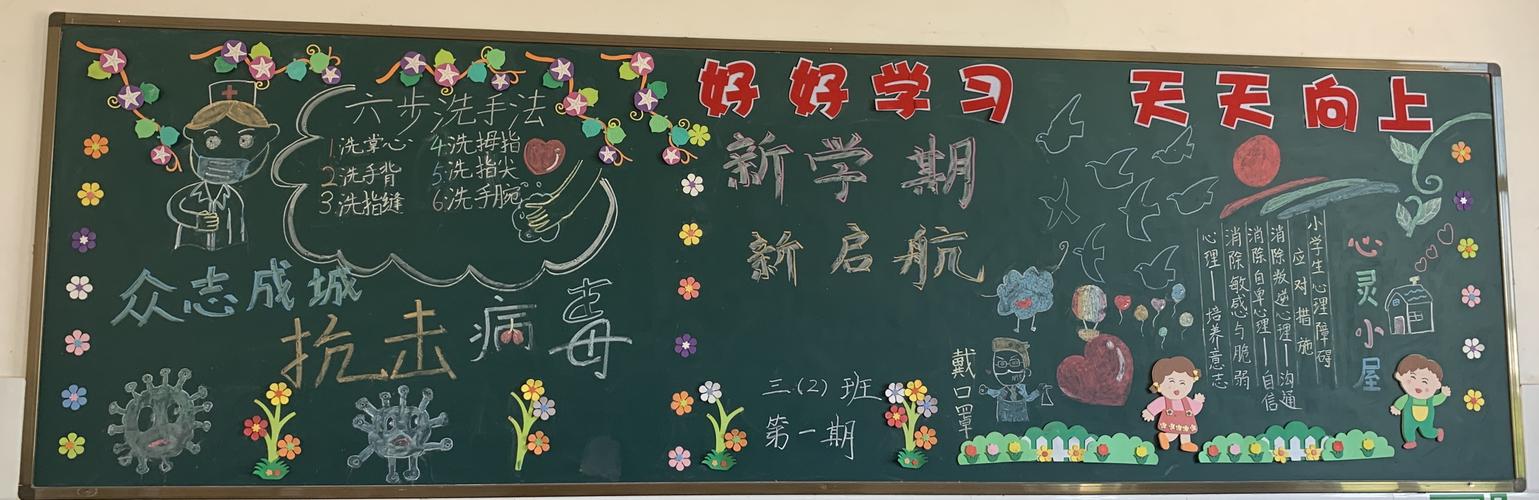 六步洗手法
1.洗掌心 4.洗拇指
2.洗手背 5.洗指尖
3.洗指缝 6.洗手腕
众志成城
抗击病毒
好好学习 天天向上
新学期
新启航
三.(2)班
第一期
戴口罩
心灵小屋
小学生心理障碍
应对措施
消除叛逆心理——沟通
消除自卑心理——自信
消除敏感与脆弱
心理——培养意志